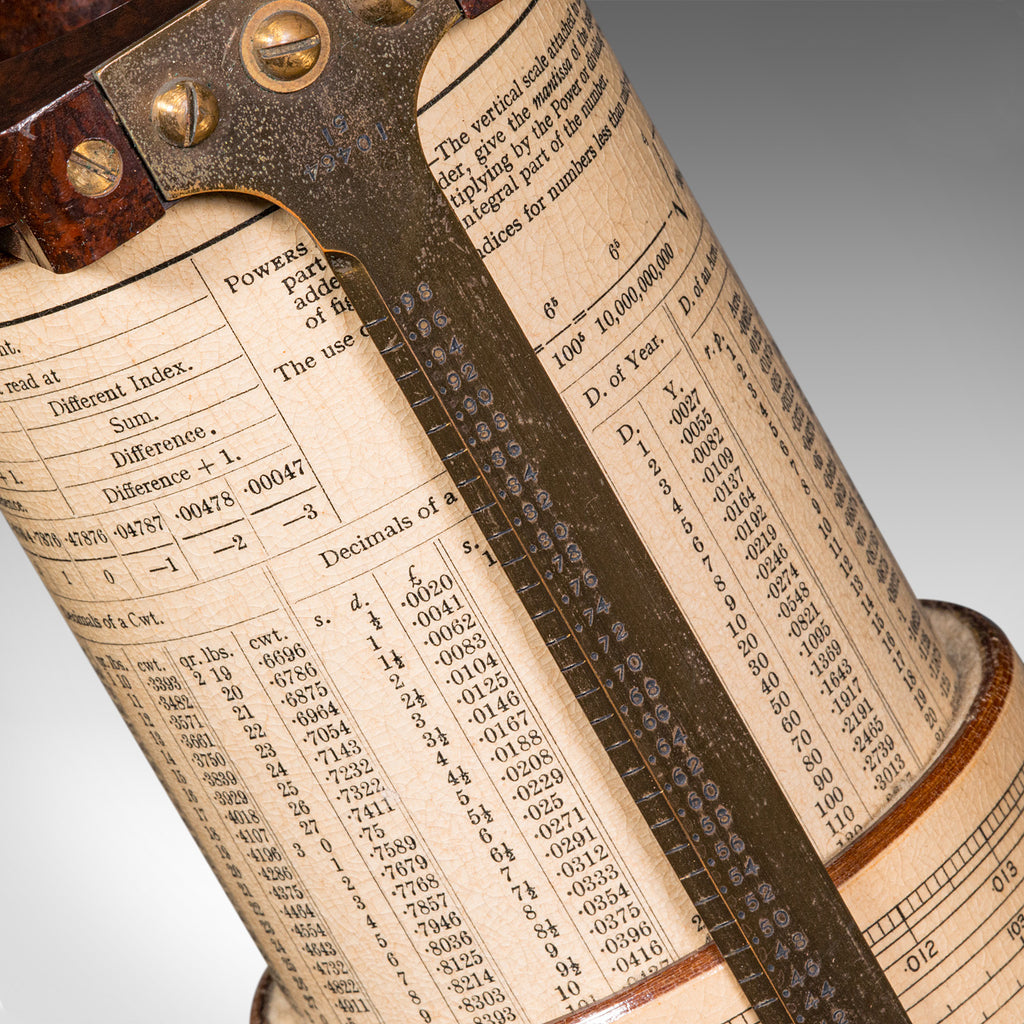 10464
51
—The vertical scale attached
der, give the mantissa of the
tiplying by the Power or
ntegral part of the number.
dices for numbers less than
POWERS
part
adde
of fig
The use
nt.
read at
Different Index.
Sum.
Difference.
+ 1. Difference + 1.
·47876 ·04787 ·00478 ·00047
1 0 —1 —2 —3
6⁵
100⁵ = 6⁵
10,000,000,000
D. of Year.
D. Y.
1 ·0027
2 ·0055
3 ·0082
4 ·0109
5 ·0137
6 ·0164
7 ·0192
8 ·0219
9 ·0246
10 ·0274
20 ·0548
30 ·0821
40 ·1095
50 ·1369
60 ·1643
70 ·1917
80 ·2191
90 ·2465
100 ·2739
110 ·3013
D. of an
r. p.
1
2
3
4
5
6
7
8
9
10
11
12
13
14
15
16
17
18
19
20
Decimals of a Cwt.
qr. lbs. cwt. qr. lbs. cwt.
10 ·3393 2 19 ·6696
11 ·3482 20 ·6786
12 ·3571 21 ·6875
13 ·3661 22 ·6964
14 ·3750 23 ·7054
15 ·3839 24 ·7143
16 ·3929 25 ·7232
17 ·4018 26 ·7322
18 ·4107 27 ·7411
19 ·4196 3 0 ·75
20 ·4286 1 ·7589
21 ·4375 2 ·7679
22 ·4464 3 ·7768
23 ·4554 4 ·7857
24 ·4643 5 ·7946
25 ·4732 6 ·8036
26 ·4822 7 ·8125
·4911 8 ·8214
9 ·8303
·8393
Decimals of a
s. d. £ s.
½ ·0020 1
1 ·0041
1½ ·0062
2 ·0083
2½ ·0104
3 ·0125
3½ ·0146
4 ·0167
4½ ·0188
5 ·0208
5½ ·0229
6 ·025
6½ ·0271
7 ·0291
7½ ·0312
8 ·0333
8½ ·0354
9 ·0375
9½ ·0396
10 ·0416
2
·98
·96
·94
·92
·90
·88
·86
·84
·82
·80
·78
·76
·74
·72
·70
·68
·66
·64
·62
·60
·58
·56
·54
·52
·50
·48
·46
·44
·012
·013